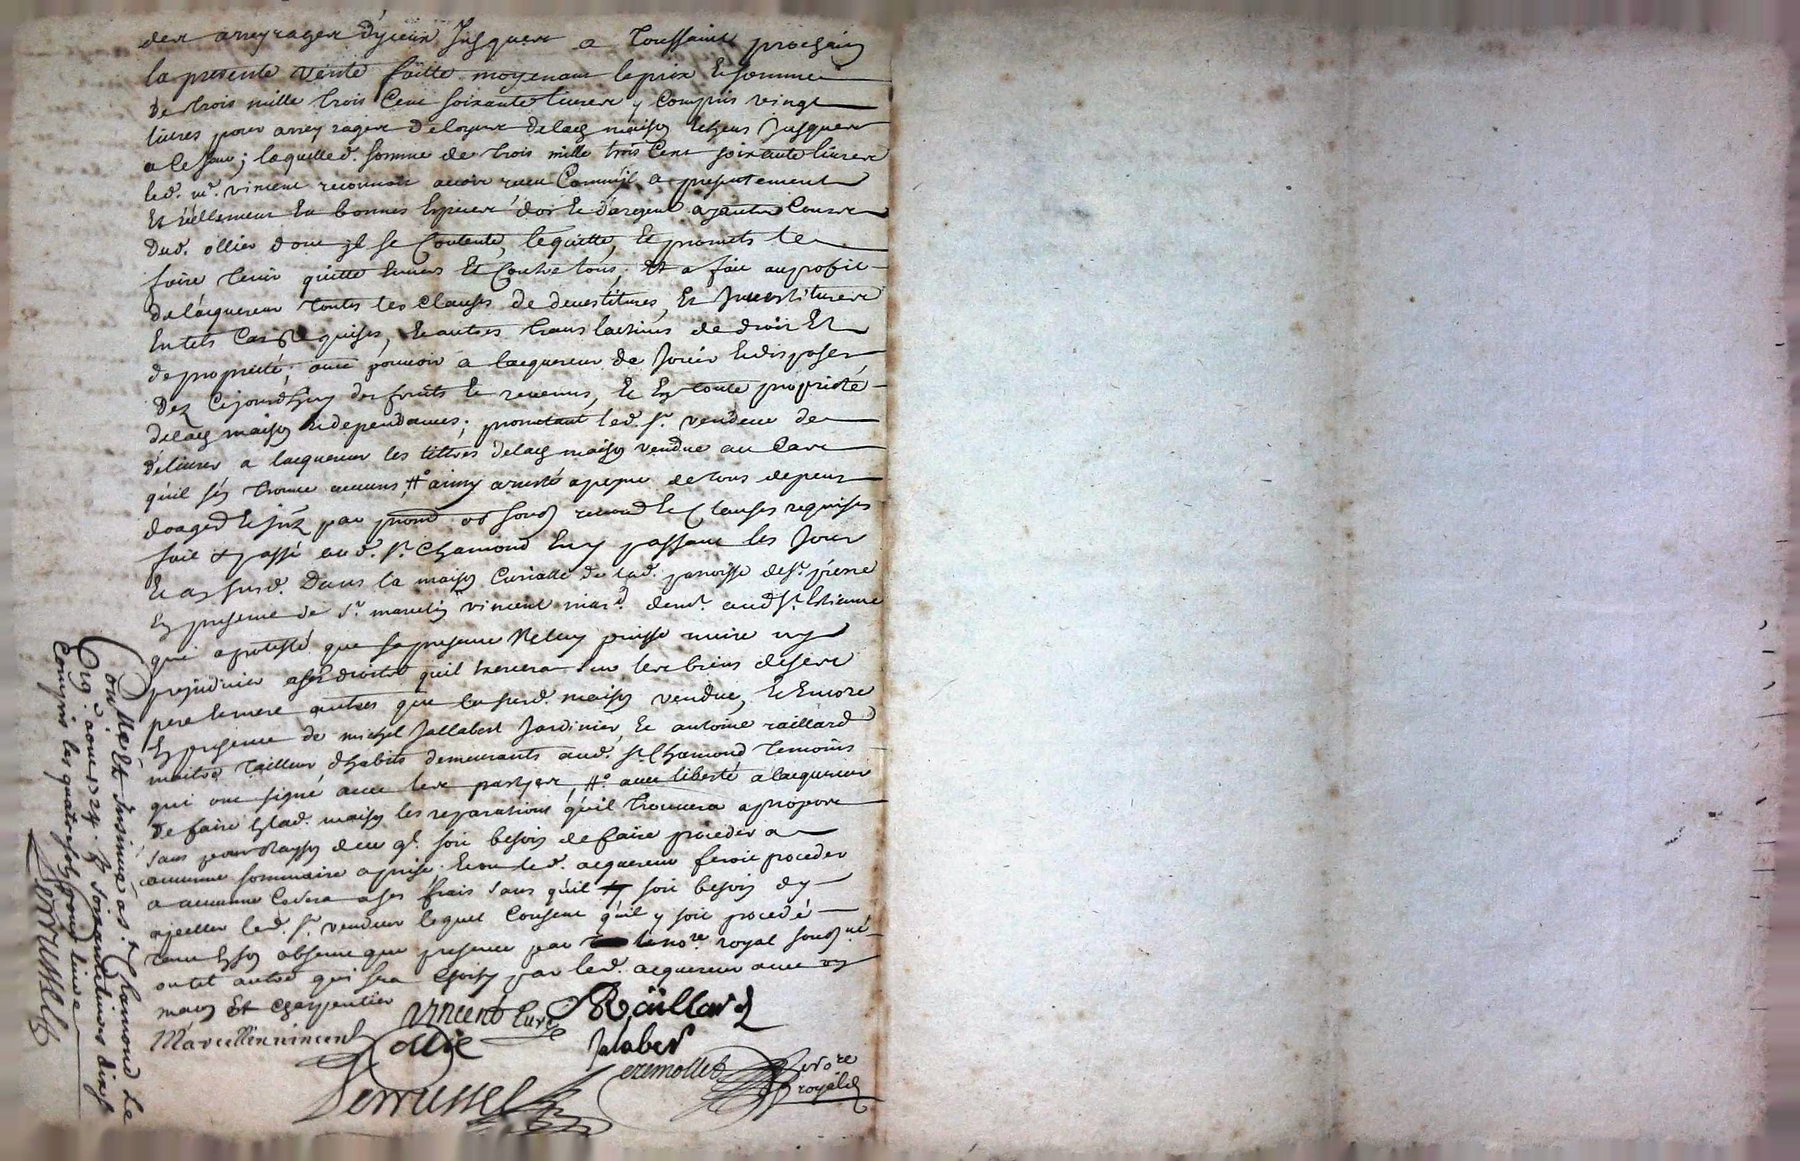 des arreyrages d'yceux Jusques a Toussaint prochain
la presente vente faitte moyenant le prix et somme
de trois mille trois Cent soixante livres y Compris vingt
livres pour arreyrages de loyers delad maison Echeus Jusques
a ce Jour ; laquelle d. somme de trois mille trois Cent soixante livres
led. mr. vincent reconnoit avoir receu Comme il a presentement
Et réellement En bonnes Especes d'or Et d'argent ayantes Cours
dud. ollier dont jl se Contente, le quitte, Et promets le
faire tenir quitte Envers Et Contre tous ; Et a fait au profit
de lacquereur toutes les Clauses de devestitures, Et Jnvestitures
En tels Cas Requises, Et autres translations de droit Et
de proprieté, avec pouvoir a lacquereur de Jouir Et disposer
dez Cejourdhuy des fruits Et revenus, Et En toute proprieté
delad maison Et dependances ; promettant led. sr. vendeur de
délivrer a lacquereur les tittres delad maison vendue au Cas
qu'il s'en trouve aucuns, # ainsy aresté a peyne de tous depens
domages Et jnz par prom. ob soub renond Et Clauses requises
fait & passé aud. St. Chamond Environ les Jour
Et an susd. Dans la maison Curialle de lad. paroisse de St. pierre
En presence de sr. marcelin vincent mard. demt. aud St. Etienne
qui a protesté que sa presence Ne luy puisse nuire ny
prejudicier a ses droits qu'il Exercera sur les biens de ses
pere Et mere autres que la susd. maison vendue, Et Encore
En presence de michel Jallabert Jardinier, Et antoine raillard
maitre tailleur d'habits demeurants aud. St. Chamond temoins
qui ont signé avec les parties, # avec liberté a lacquereur
de faire En lad. maison les reparations qu'il trouvera a propos
sans pour raison de ce ql. soit besoin de faire proceder a
aucune sommaire aprise Et ou led. acquereur feroit proceder
a aucune Ce sera a ses frais sans qu'il soit besoin d'y
apeller led. sr. vendeur lequel Consent qu'il y soit procedé
tant En son absence que presence par le nore. royal soubzné
ou tel autre qui sera choisy par led. acquereur avec un
maçon Et charpentier
vincent Curé Raillard
Marcellin vincent ollie Jalaber
Perrussel
nore
royal
Conllé Et Jnsinué a St. Chamond Le
Compris les quatre sols pour livre
Perrussel